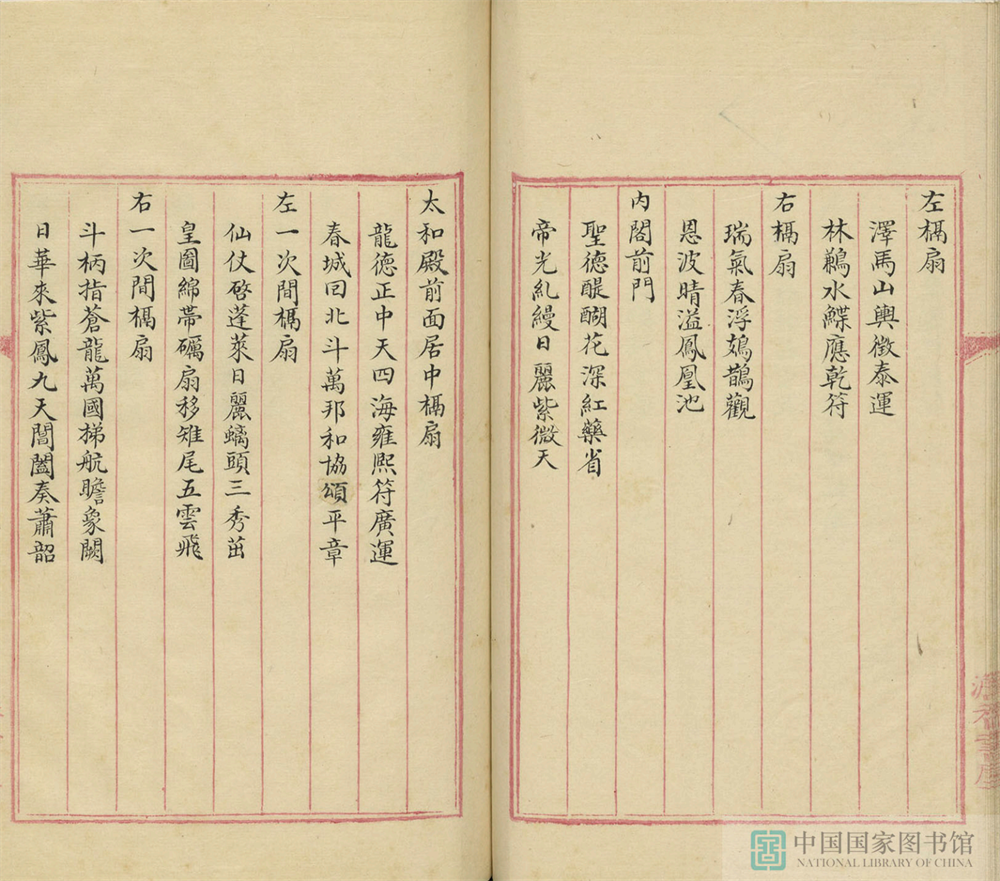 左槅扇
澤馬山輿徵泰運
林鶼水鰈應乾符
右槅扇
瑞氣春浮鳷鵲觀
恩波晴溢鳳凰池
內閣前門
聖德醍醐花深紅藥省
帝光糺縵日麗紫微天
太和殿前面居中槅扇
龍德正中天四海雍熙符廣運
春城回北斗萬邦和協頌平章
左一次間槅扇
仙仗啓蓬萊日麗螭頭三秀茁
皇圖綿帶礪扇移雉尾五雲飛
右一次間槅扇
斗柄指蒼龍萬國梯航瞻象闕
日華來紫鳳九天閶闔奏蕭韶
中国国家图书馆
NATIONAL LIBRARY OF CHINA